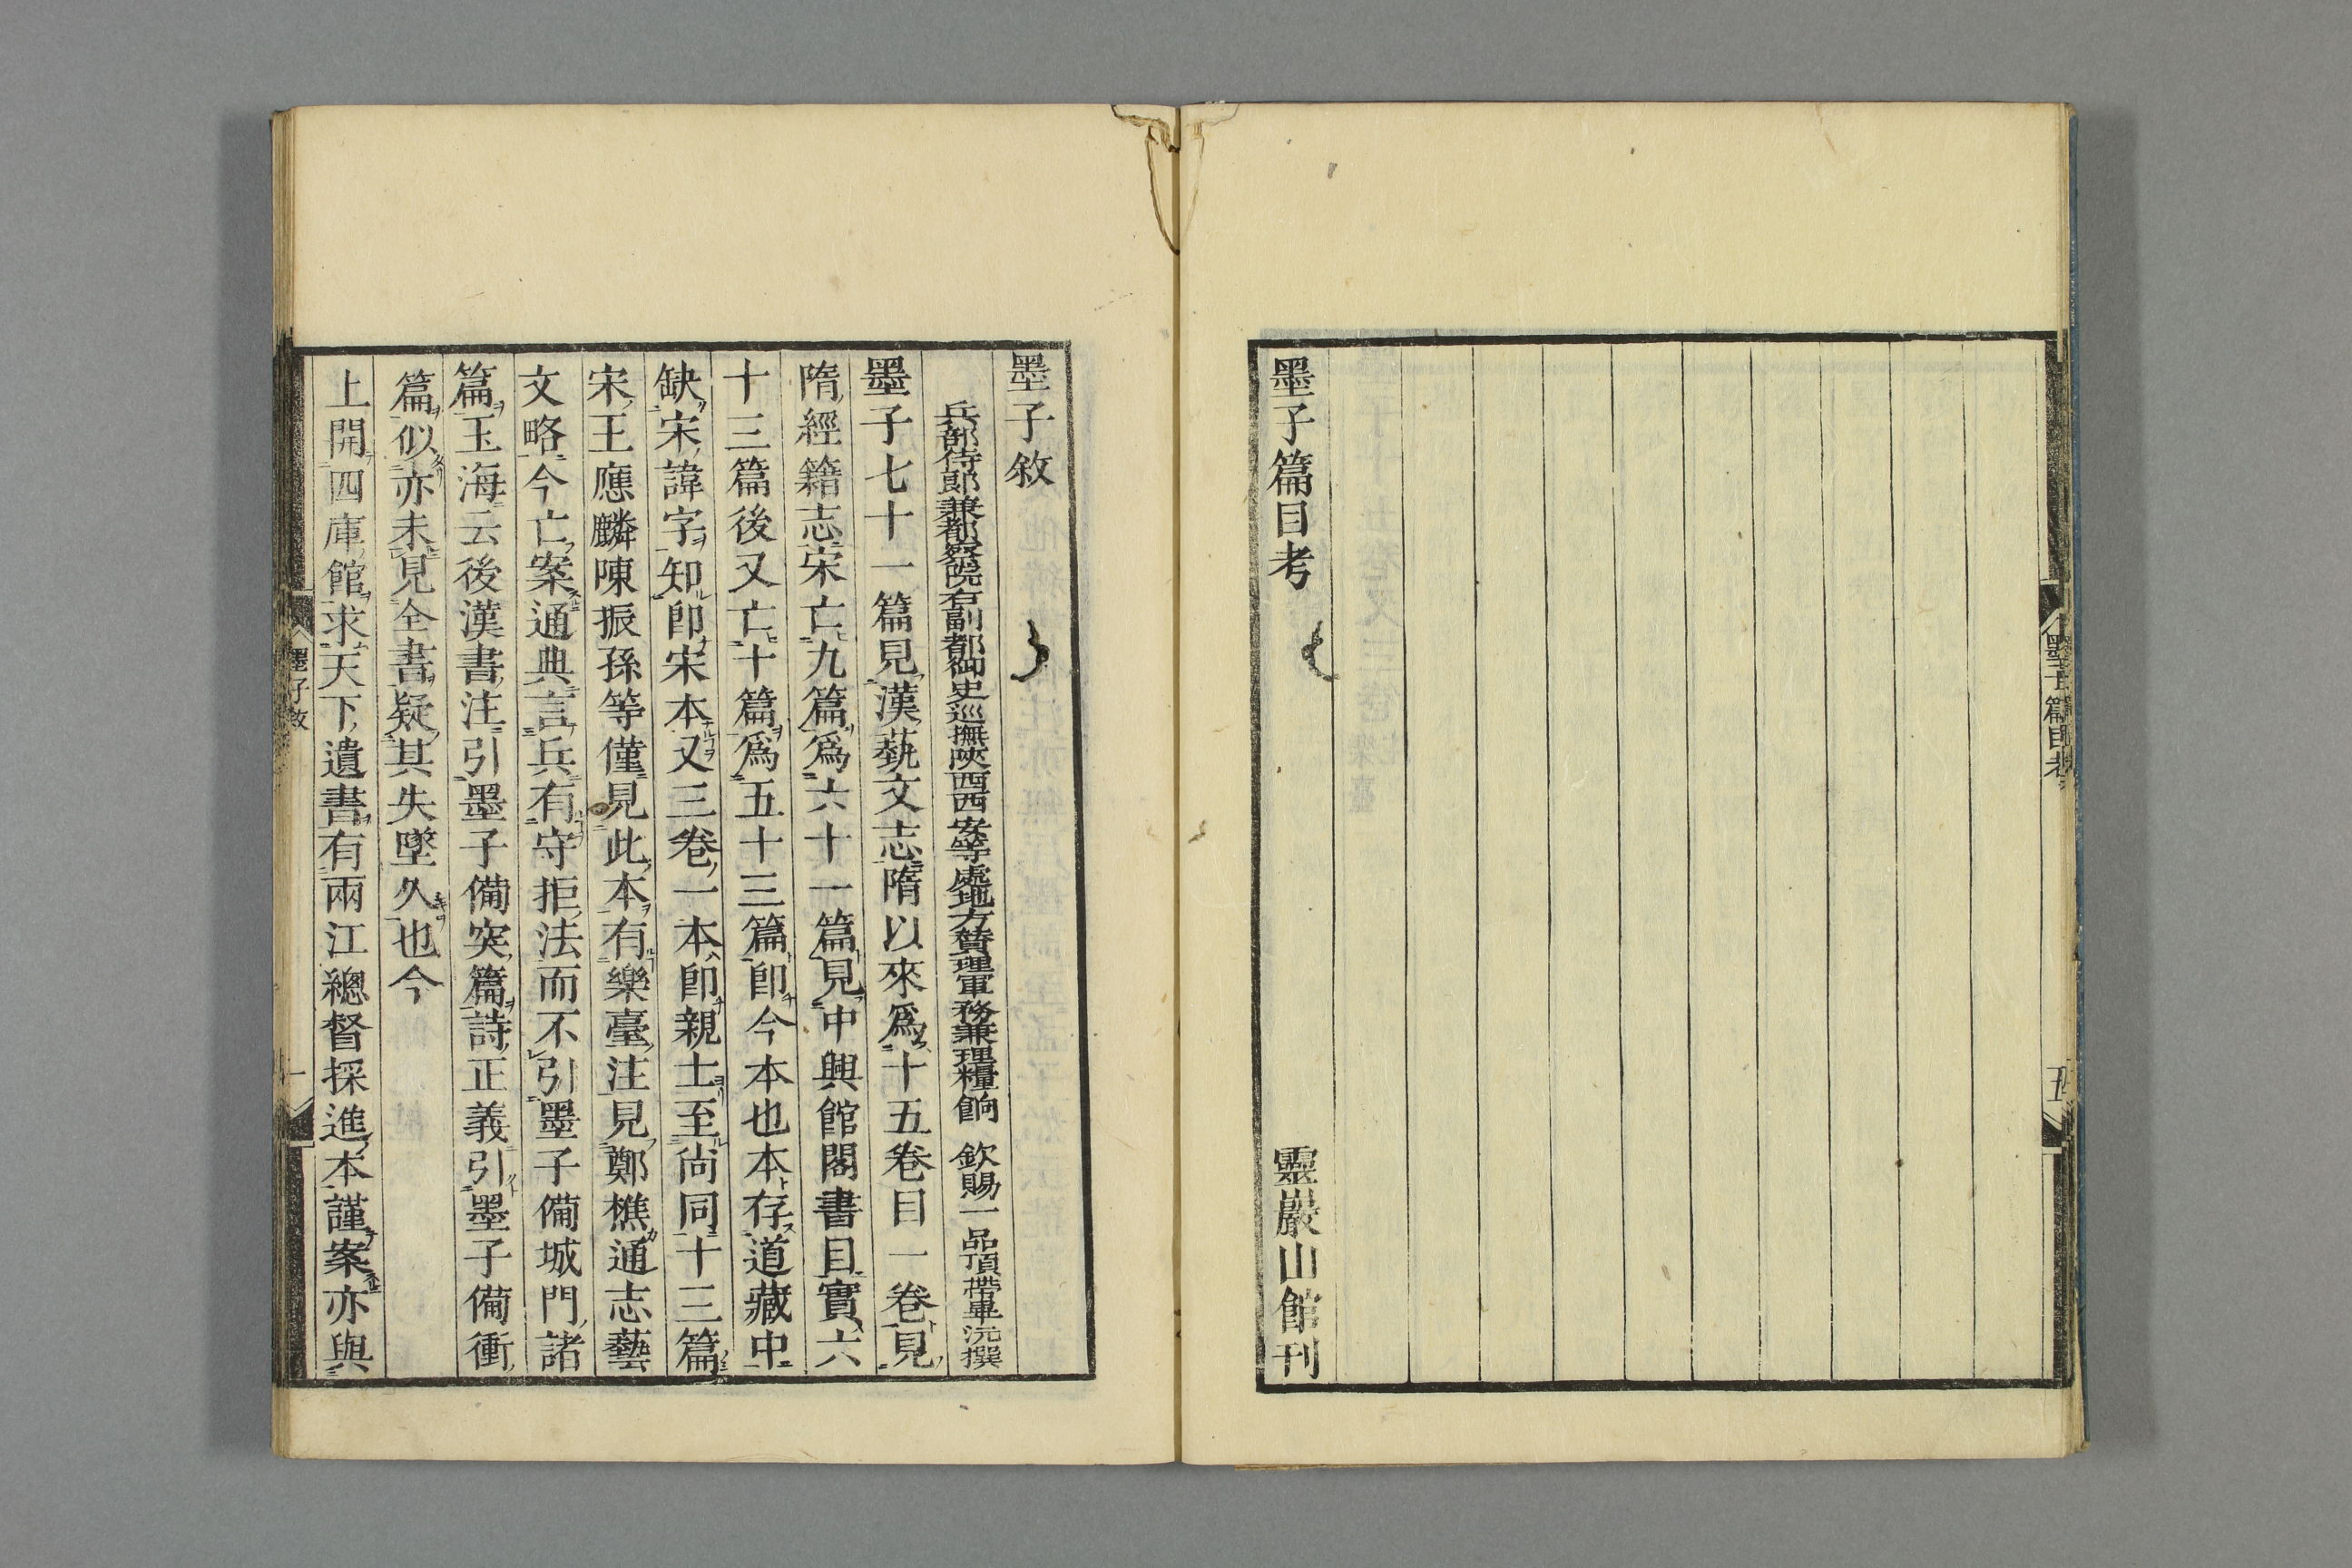 墨子篇目考
五
墨子篇目考 靈巖山館刊
墨子敘
兵部侍郎兼都察院右副都御史巡撫陝西西安等處地方贊理軍務兼理糧餉 欽賜一品頂帶畢沅撰
墨子七十一篇見漢藝文志隋以來爲十五卷目一卷見
隋經籍志宋亡九篇爲六十一篇見中興館閣書目實六
十三篇後又亡十篇爲五十三篇卽今本也本存道藏中
缺宋諱字知卽宋本又三卷一本卽親士至尚同十三篇
宋王應麟陳振孫等僅見此本有樂臺注見鄭樵通志藝
文略今亡案通典言兵有守拒法而不引墨子備城門諸
篇玉海云後漢書注引墨子備突篇詩正義引墨子備衝
篇似亦未見全書疑其失墜久也今
上開四庫館求天下遺書有兩江總督採進本謹案亦與
墨子敘
一